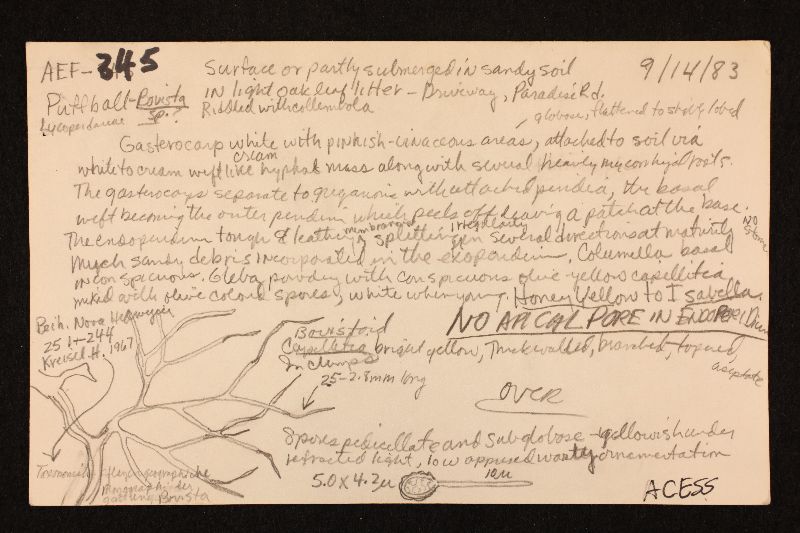 AEF-345
Surface or partly submerged in sandy soil
9/14/83
in light oak leaf litter - Driveway, Paradise Rd.
Puffball - Bovista
sp.?
Riddled with collembola
Lycoperdaceae
globose, flattened to slightly lobed
Gasterocarp white with pinkish-vinaceous areas, attached to soil via
cream
white to cream weft like hyphal mass along with several nearly mycorrhizal roots.
The gasterocarps separate to with attached peridia, the basal
weft becoming the outer peridium which peels off leaving a patch at the base.
membranous
irregularly
No
stoma
The endoperidium tough & leathery splitting open several directions at maturity
Much sandy debris incorporated in the exoperidium, Columella basal
inconspicuous. Gleba powdery with conspicuous olive-yellow capillitia
mixed with olive colored spores, white when young. Honey Yellow to Isabella
NO APICAL PORE IN ENDOPERIDIUM
Beih. Nova Hedwigia
25 1-244
Kreisel H. 1967
Bovistoid
Capillitia bright yellow, Thick walled, branched, tapered,
aseptate
In clumps
25-2.8mm long
OVER
Spores pedicellate and subglobose - yellowish under
refracted light, low appressed warty ornamentation
5.0 x 4.2µ
10µ
Taxonomisch-Pflanzengeographische
Monographie der
Gattung Bovista
ACESS